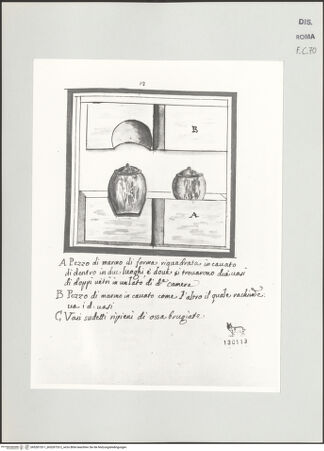 DIS.
ROMA
F.C. 70
12
B
A
A Pezzo di marmo di forma riquadrata incavato
di dentro in due luoghi e dove si trovarono due vasi
di doppi vetri in un lato di d.ª camera
B Pezzo di marmo incavato come l'altro il quale rachiude
va i d. vasi
C Vasi sudetti ripieni di ossa brugiate
130113